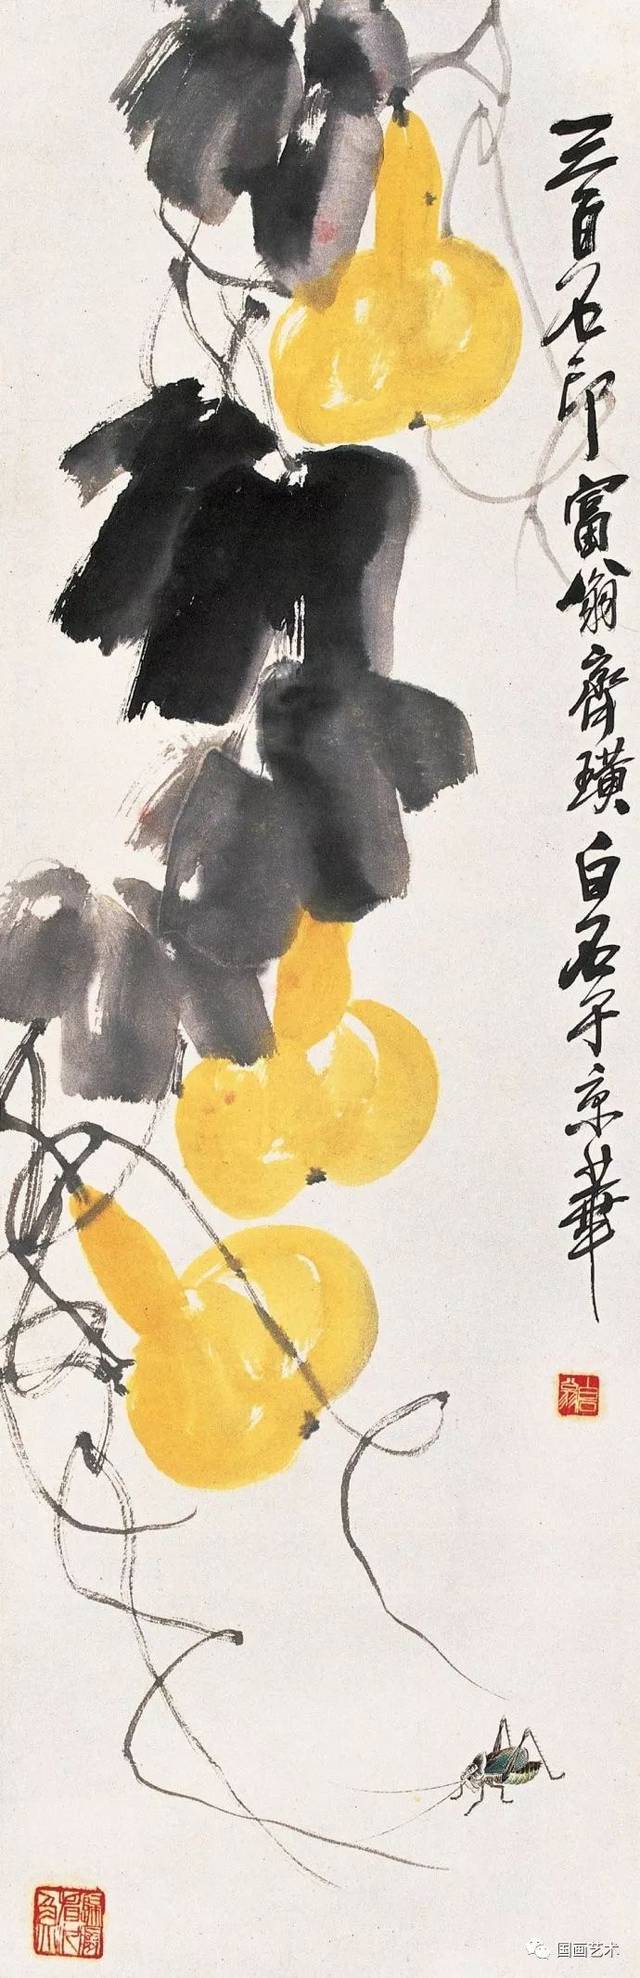 三百石印富翁齊璜白石于京華
国画艺术